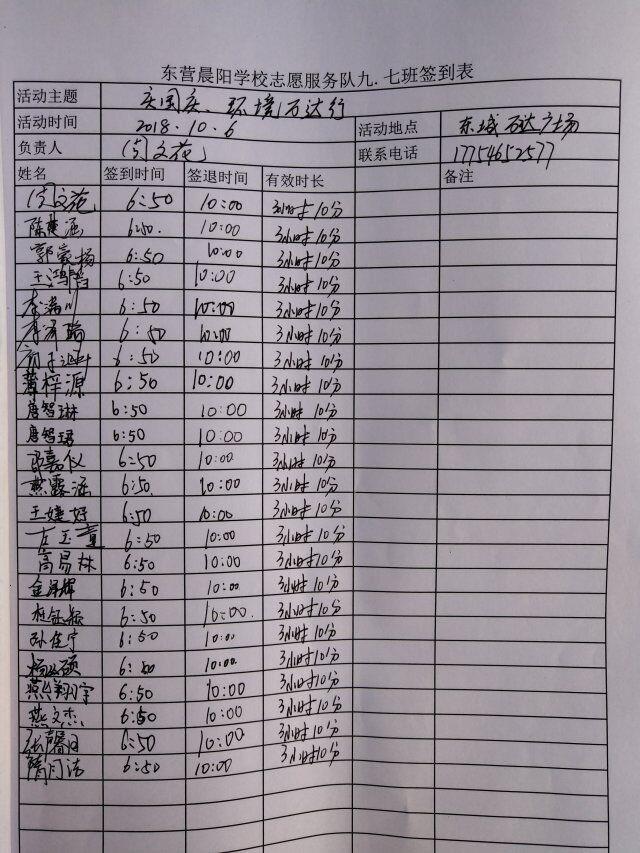 东营晨阳学校志愿服务队九.七班签到表
活动主题 庆国庆、环境万达行
活动时间 2018.10.6 活动地点 东城万达广场
负责人 闫文苑 联系电话 17754652577
姓名 签到时间 签退时间 有效时长 备注
闫文苑 6:50 10:00 3小时10分
陈 涵 6:50. 10:00 3小时10分
郭家扬 6:50 10:00 3小时10分
王鸿 6:50 10:00 3小时10分
李满川 6:50 10:00 3小时10分
李泽瑞 6:50 10:00 3小时10分
6:50 10:00 3小时10分
董梓源 6:50 10:00 3小时10分
唐智琳 6:50 10:00 3小时10分
唐智珺 6:50 10:00 3小时10分
嘉仪 6:50 10:00 3小时10分
燕露涵 6:50. 10:00 3小时10分
王婕妤 6:50 10:00 3小时10分
左玉童 6:50 10:00 3小时10分
高易林 6:50 10:00 3小时10分
金泽辉 6:50 10:00 3小时10分
6:50 10:00. 3小时10分
孙佳宁 6:50 10:00 3小时10分
硕 6:50 10:00 3小时10分
燕翔宇 6:50 10:00 3小时10分
燕文杰 6:50 10:00 3小时10分
张馨月 6:50 10:00 3小时10分
隋月洁 6:50 10:00 3小时10分